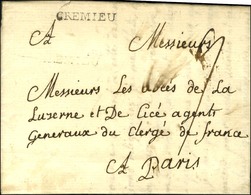 CREMIEU
A Messieurs
Messieurs Les abés de La
Luzerne et De Cicé agents
Generaux du Clergé de france
A Paris